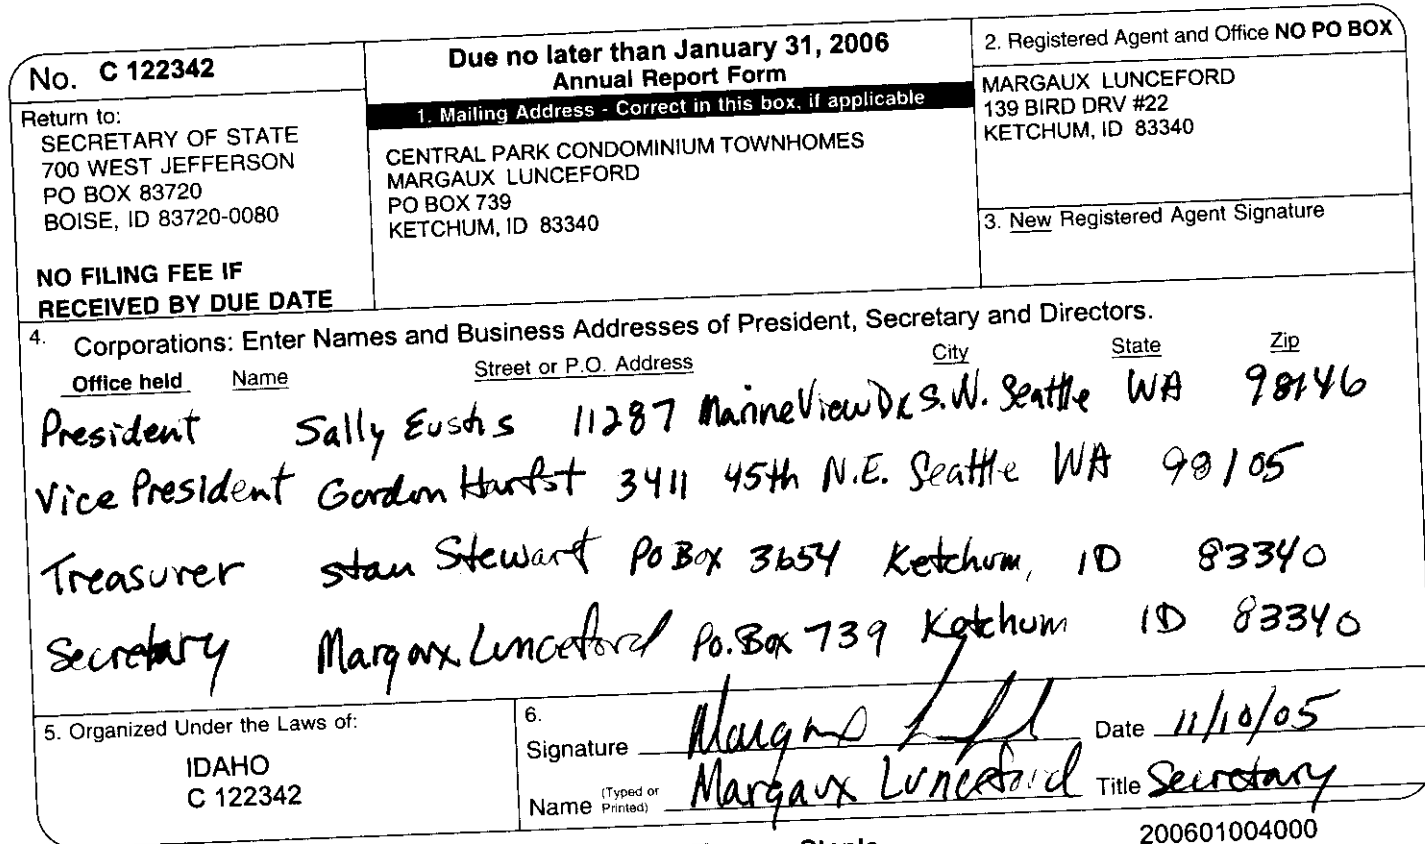 No. C 122342
Return to:
SECRETARY OF STATE
700 WEST JEFFERSON
PO BOX 83720
BOISE, ID 83720-0080
NO FILING FEE IF
RECEIVED BY DUE DATE
Due no later than January 31, 2006
Annual Report Form
1. Mailing Address - Correct in this box, if applicable
CENTRAL PARK CONDOMINIUM TOWNHOMES
MARGAUX LUNCEFORD
PO BOX 739
KETCHUM, ID 83340
2. Registered Agent and Office NO PO BOX
MARGAUX LUNCEFORD
139 BIRD DRV #22
KETCHUM, ID 83340
3. New Registered Agent Signature
4. Corporations: Enter Names and Business Addresses of President, Secretary and Directors.
Office held Name Street or P.O. Address City State Zip
President Sally Eustis 11287 Marine View Dr S.W. Seattle WA 98146
Vice President Gordon 3411 45th N.E. Seattle WA 98105
Treasurer Stan Stewart PO Box 3654 Ketchum, ID 83340
Secretary Margaux Lunceford Po. Box 739 Ketchum ID 83340
5. Organized Under the Laws of:
IDAHO
C 122342
6.
Signature Margaux Lunceford Date 11/10/05
Name (Typed or Printed) Margaux Lunceford Title Secretary
200601004000